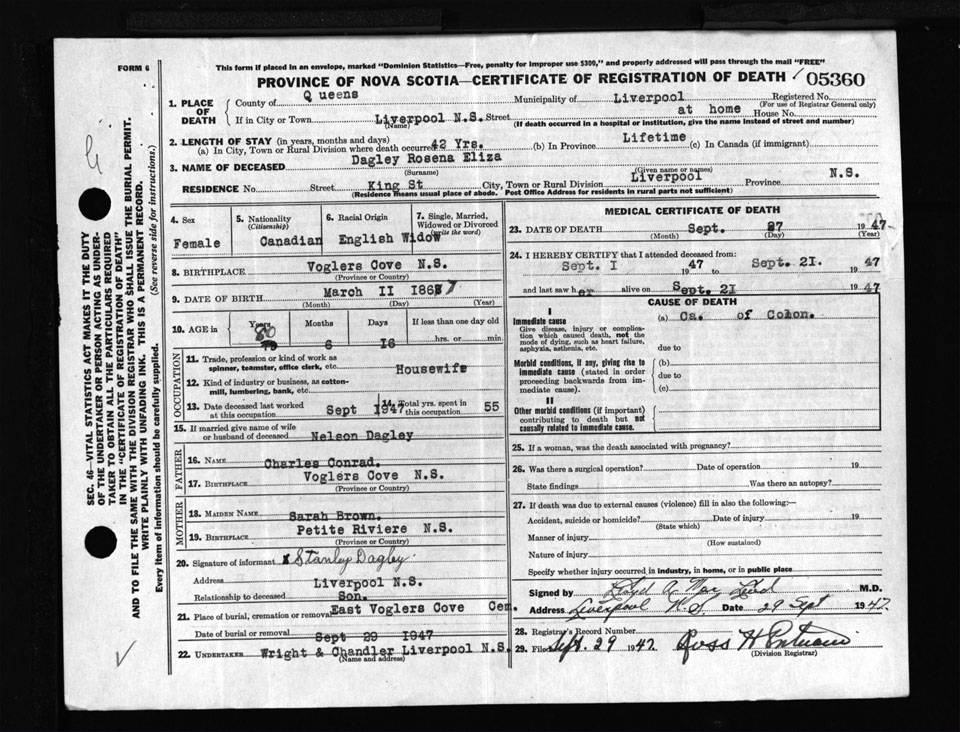 FORM 6
This form if placed in an envelope, marked "Dominion Statistics—Free, penalty for improper use $300," and properly addressed will pass through the mail "FREE"
PROVINCE OF NOVA SCOTIA—CERTIFICATE OF REGISTRATION OF DEATH 05360
1. PLACE OF DEATH County of Queens Municipality of Liverpool Registered No.
(For use of Registrar General only)
If in City or Town Liverpool N.S. Street at home House No.
(Name) (If death occurred in a hospital or institution, give the name instead of street and number)
2. LENGTH OF STAY (in years, months and days)
(a) In City, Town or Rural Division where death occurred 42 Yrs. (b) In Province Lifetime (c) In Canada (if immigrant)
3. NAME OF DECEASED Dagley Rosena Eliza
(Surname) (Given name or names)
RESIDENCE No. Street King St City, Town or Rural Division Liverpool Province N.S.
(Residence means usual place of abode. Post Office Address for residents in rural parts not sufficient)
4. Sex Female
5. Nationality (Citizenship) Canadian
6. Racial Origin English
7. Single, Married, Widowed or Divorced (write the word) Widow
8. BIRTHPLACE Voglers Cove N.S.
(Province or Country)
9. DATE OF BIRTH March II 1867
(Month) (Day) (Year)
10. AGE in Years Months Days If less than one day old
80 6 I6 hrs. or min
OCCUPATION
11. Trade, profession or kind of work as spinner, teamster, office clerk, etc. Housewife
12. Kind of industry or business, as cotton-mill, lumbering, bank, etc.
13. Date deceased last worked at this occupation Sept 1947 14. Total yrs. spent in this occupation 55
15. If married give name of wife or husband of deceased Nelson Dagley
FATHER
16. NAME Charles Conrad.
17. BIRTHPLACE Voglers Cove N.S.
(Province or Country)
MOTHER
18. MAIDEN NAME Sarah Brown.
19. BIRTHPLACE Petite Riviere N.S.
(Province or Country)
20. Signature of informant x Stanley Dagley
Address Liverpool N.S.
Relationship to deceased Son.
21. Place of burial, cremation or removal East Voglers Cove Cem.
Date of burial or removal Sept 29 1947
22. UNDERTAKER Wright & Chandler Liverpool N.S.
(Name and address)
MEDICAL CERTIFICATE OF DEATH
23. DATE OF DEATH Sept. 27 1947
(Month) (Day) (Year)
24. I HEREBY CERTIFY that I attended deceased from:
Sept. I 1947 to Sept. 2I. 1947
and last saw her alive on Sept. 2I 1947
CAUSE OF DEATH
I
Immediate cause (a) Ca. of Colon.
Give disease, injury or complication which caused death, not the mode of dying, such as heart failure, asphyxia, asthenia, etc.
due to
Morbid conditions, if any, giving rise to immediate cause (stated in order proceeding backwards from immediate cause).
(b)
due to
(c)
II
Other morbid conditions (if important) contributing to death but not causally related to immediate cause.
25. If a woman, was the death associated with pregnancy?
26. Was there a surgical operation? Date of operation 19
State findings Was there an autopsy?
27. If death was due to external causes (violence) fill in also the following:—
Accident, suicide or homicide? Date of injury 19
(State which)
Manner of injury
(How sustained)
Nature of injury
Specify whether injury occurred in industry, in home, or in public place
Signed by Lloyd A. Mac Leod M.D.
Address Liverpool N.S Date 29 Sept 1947.
28. Registrar's Record Number
29. Filed Sept. 29 1947 Ross H
(Division Registrar)
SEC. 46—VITAL STATISTICS ACT MAKES IT THE DUTY
OF THE UNDERTAKER OR PERSON ACTING AS UNDER-
TAKER TO OBTAIN ALL THE PARTICULARS REQUIRED
IN THE "CERTIFICATE OF REGISTRATION OF DEATH"
AND TO FILE THE SAME WITH THE DIVISION REGISTRAR WHO SHALL ISSUE THE BURIAL PERMIT.
WRITE PLAINLY WITH UNFADING INK. THIS IS A PERMANENT RECORD.
Every item of information should be carefully supplied. (See reverse side for instructions.)